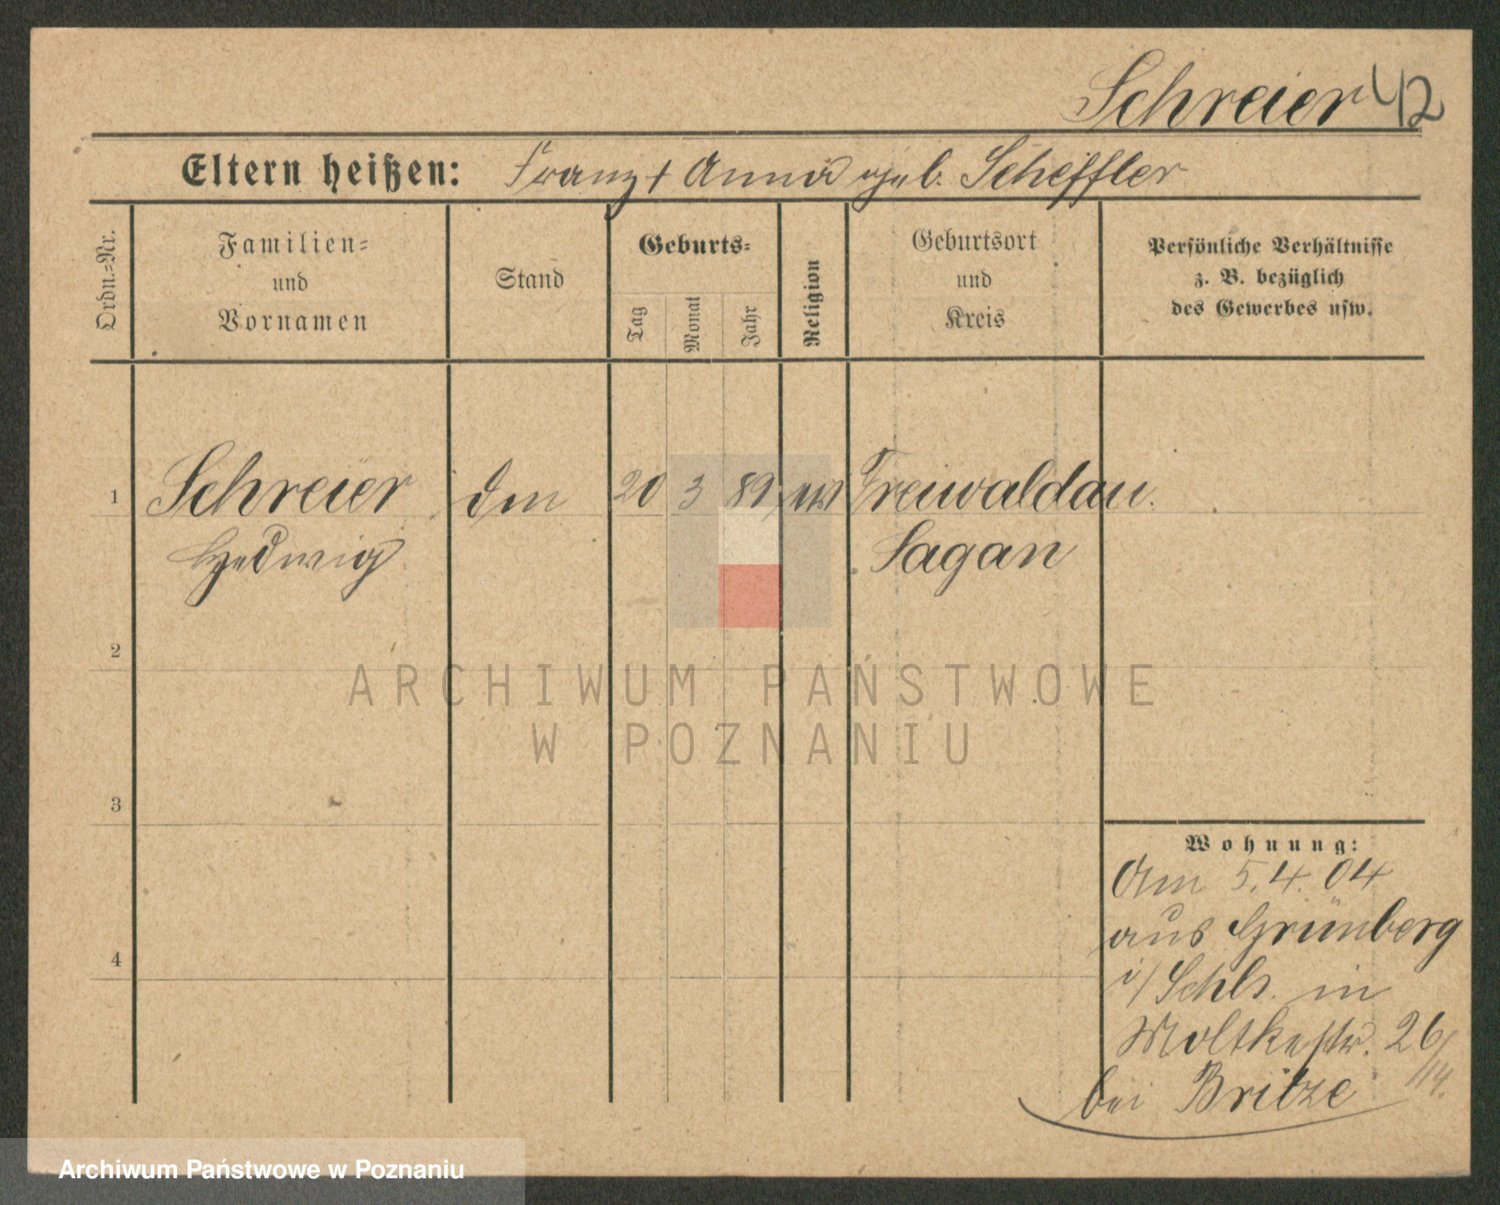 Schreier 42
Eltern heißen: Franz + Anna geb. Scheffler
Ordn.-Nr.
Familien-
und
Vornamen
Stand
Geburts-
Tag
Monat
Jahr
Religion
Geburtsort
und
Kreis
Persönliche Verhältnisse
z. B. bezüglich
des Gewerbes usw.
1 Schreier 20 3 89 Freiwaldau.
Hedwig Sagan
2
3
4
Wohnung:
Am 5.4.04
aus Grünberg
i/Schls. in
Moltkestr. 26/
bei Britze
ARCHIWUM PAŃSTWOWE
W POZNANIU
Archiwum Państwowe w Poznaniu